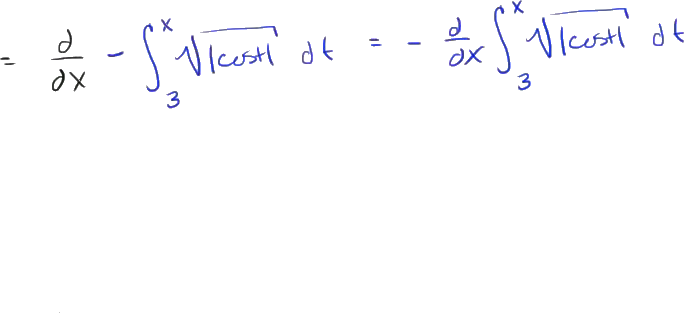 = d/dx - ∫₃ˣ √|cost| dt = - d/dx ∫₃ˣ √|cost| dt